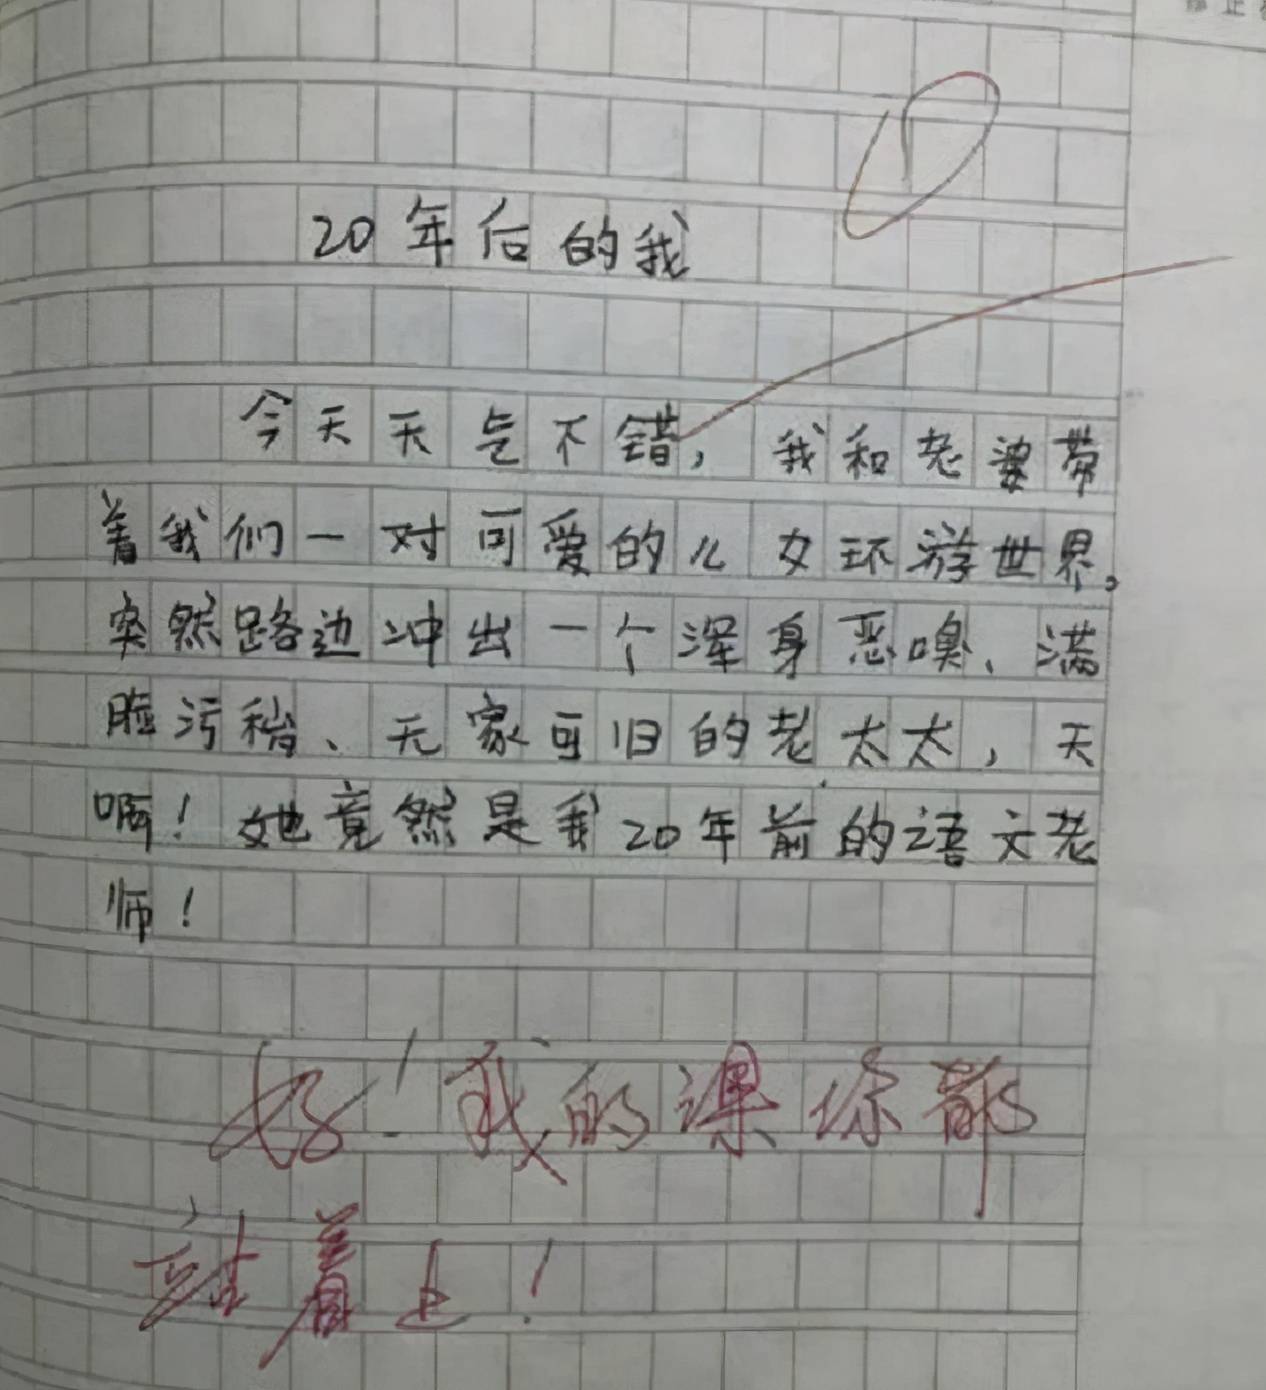 20年后的我
今天天气不错，我和老婆带
着我们一对可爱的儿女环游世界，
突然路边冲出一个浑身恶嗅、满
脸污秽、无家可归的老太太，天
啊！她竟然是我20年前的语文老
师！
好！我的课你都
站着上！